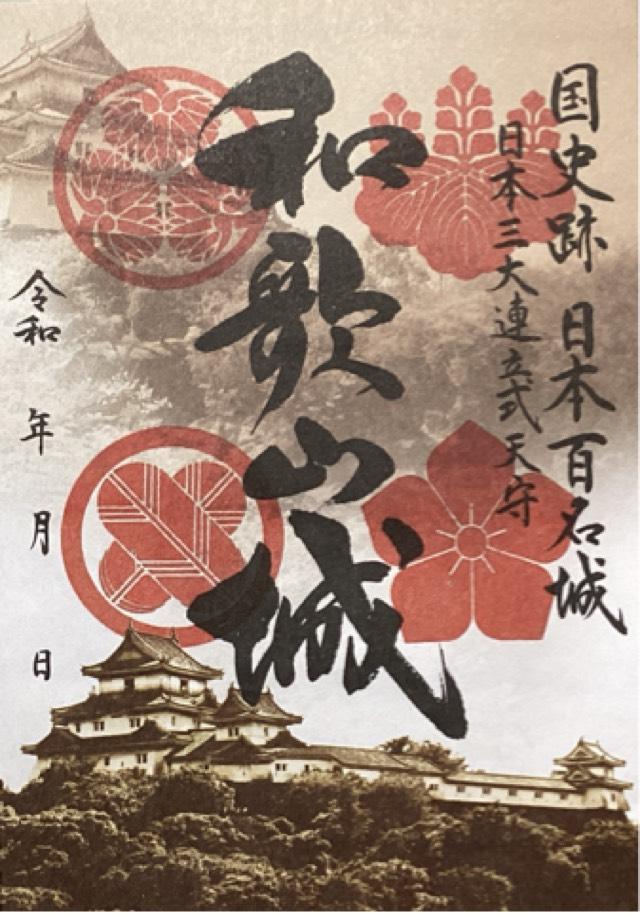 国史跡 日本百名城
日本三大連立式天守
和歌山城
令和 年 月 日